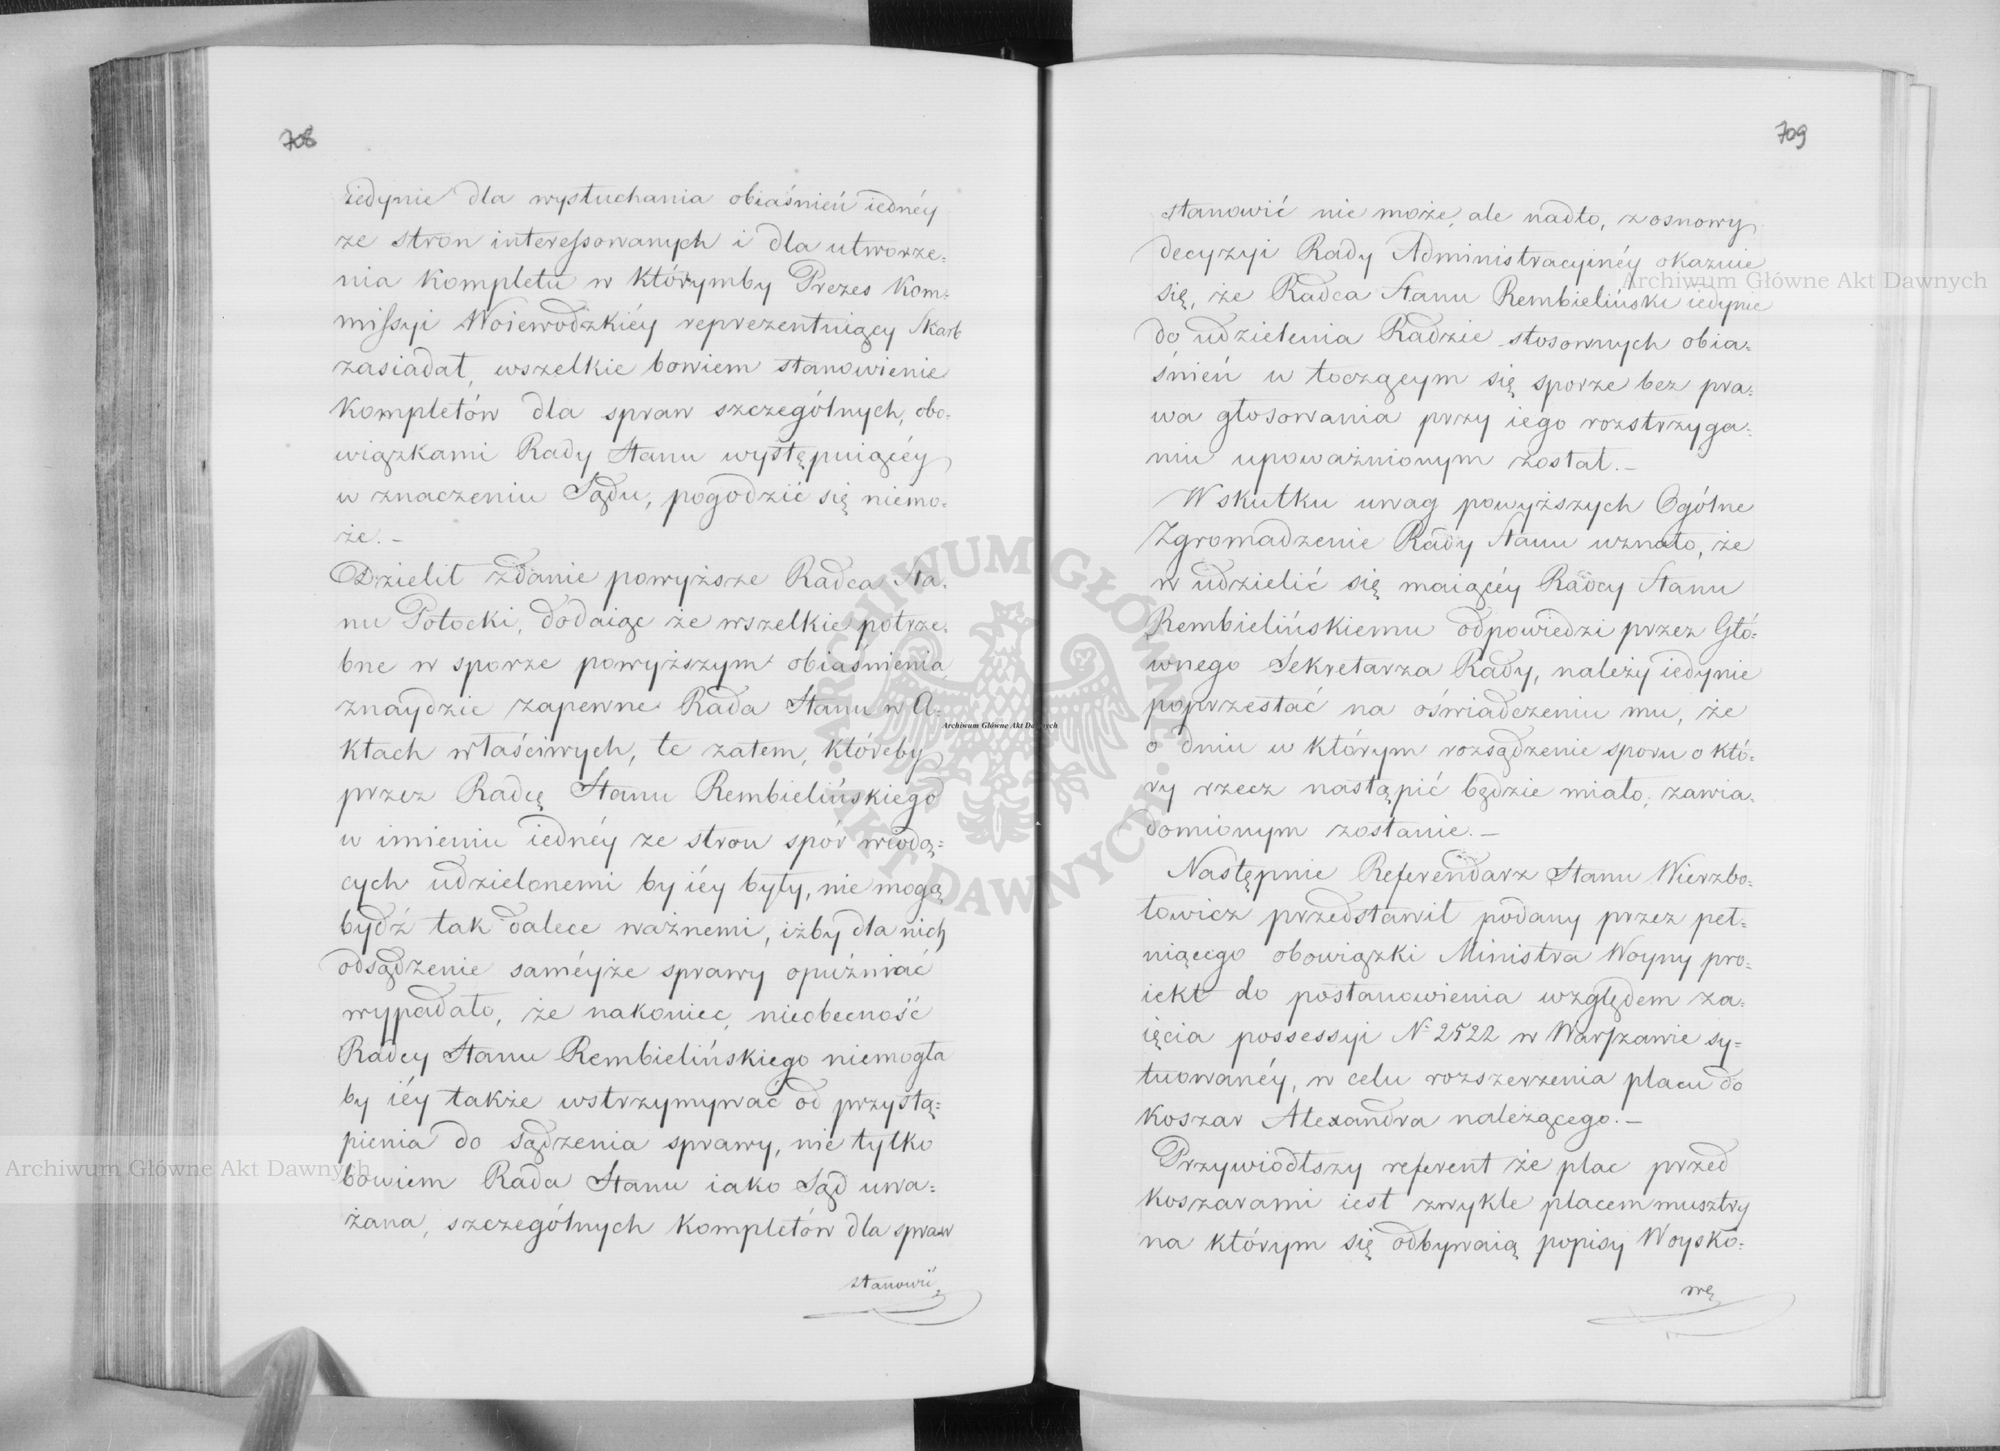 708
iedynie dla wysłuchania obiaśnień iednéy
ze stron interessowanych i dla utworze=
nia kompletu w którymby Prezes Kom=
missyi Woiewodzkiéy reprezentuiący Skarb
zasiadał, wszelkie bowiem stanowienie
kompletów dla spraw szczególnych, obo=
wiązkami Rady Stanu występuiącéy
w znaczeniu Sądu, pogodzić się niemo=
że. –
Dzielił zdanie powyższe Radca Sta=
nu Potocki, dodaiąc że wszelkie potrze=
bne w sporze powyższym obiaśnienia
znaydzie zapewne Rada Stanu w A=
ktach właściwych, te zatem, któreby
przez Radcę Stanu Rembielińskiego
w imieniu iednéy ze stron spór wiodą=
cych udzielonemi by iéy były, nie mogą
bydź tak dalece ważnemi, iżby dla nich
odsądzenie saméyże sprawy opuźniać
wypadało, że nakoniec, nieobecność
Radcy Stanu Rembielińskiego niemogła
by iéy także wstrzymywać od przystą=
pienia do sądzenia sprawy, nie tylko
bowiem Rada Stanu iako Sąd uwa=
żana, szczególnych kompletów dla spraw
stanowić
709
stanowić nie może, ale nadto, z osnowy
decyzyi Rady Administracyinéy okazuie
się, że Radca Stanu Rembieliński iedynie
do udzielenia Radzie stosownych obia=
śnień w toczącym się sporze bez pra=
wa głosowania przy iego rozstrzyga=
niu upoważnionym został. –
W skutku uwag powyższych Ogólne
Zgromadzenie Rady Stanu uznało, że
w udzielić się maiącéy Radcy Stanu
Rembielińskiemu odpowiedzi przez Głó=
wnego Sekretarza Rady, należy iedynie
poprzestać na oświadczeniu mu, że
o dniu w którym rozsądzenie sporu o któ=
ry rzecz nastąpić będzie miało, zawia=
domionym zostanie. –
Następnie Referendarz Stanu Wierzbo=
łowicz przedstawił podany przez peł=
niącego obowiązki Ministra Woyny pro=
iekt do postanowienia względem za=
ięcia possessyi N° 2522 w Warszawie sy=
tuowanéy, w celu rozszerzenia placu do
koszar Alexandra należącego. –
Przywiodłszy referent że plac przed
koszarami iest zwykle placem musztry
na którym się odbywaią popisy Woysko=
we
Archiwum Główne Akt Dawnych
Archiwum Główne Akt Dawnych
Archiwum Główne Akt Dawnych
ARCHIWUM GŁÓWNE AKT DAWNYCH